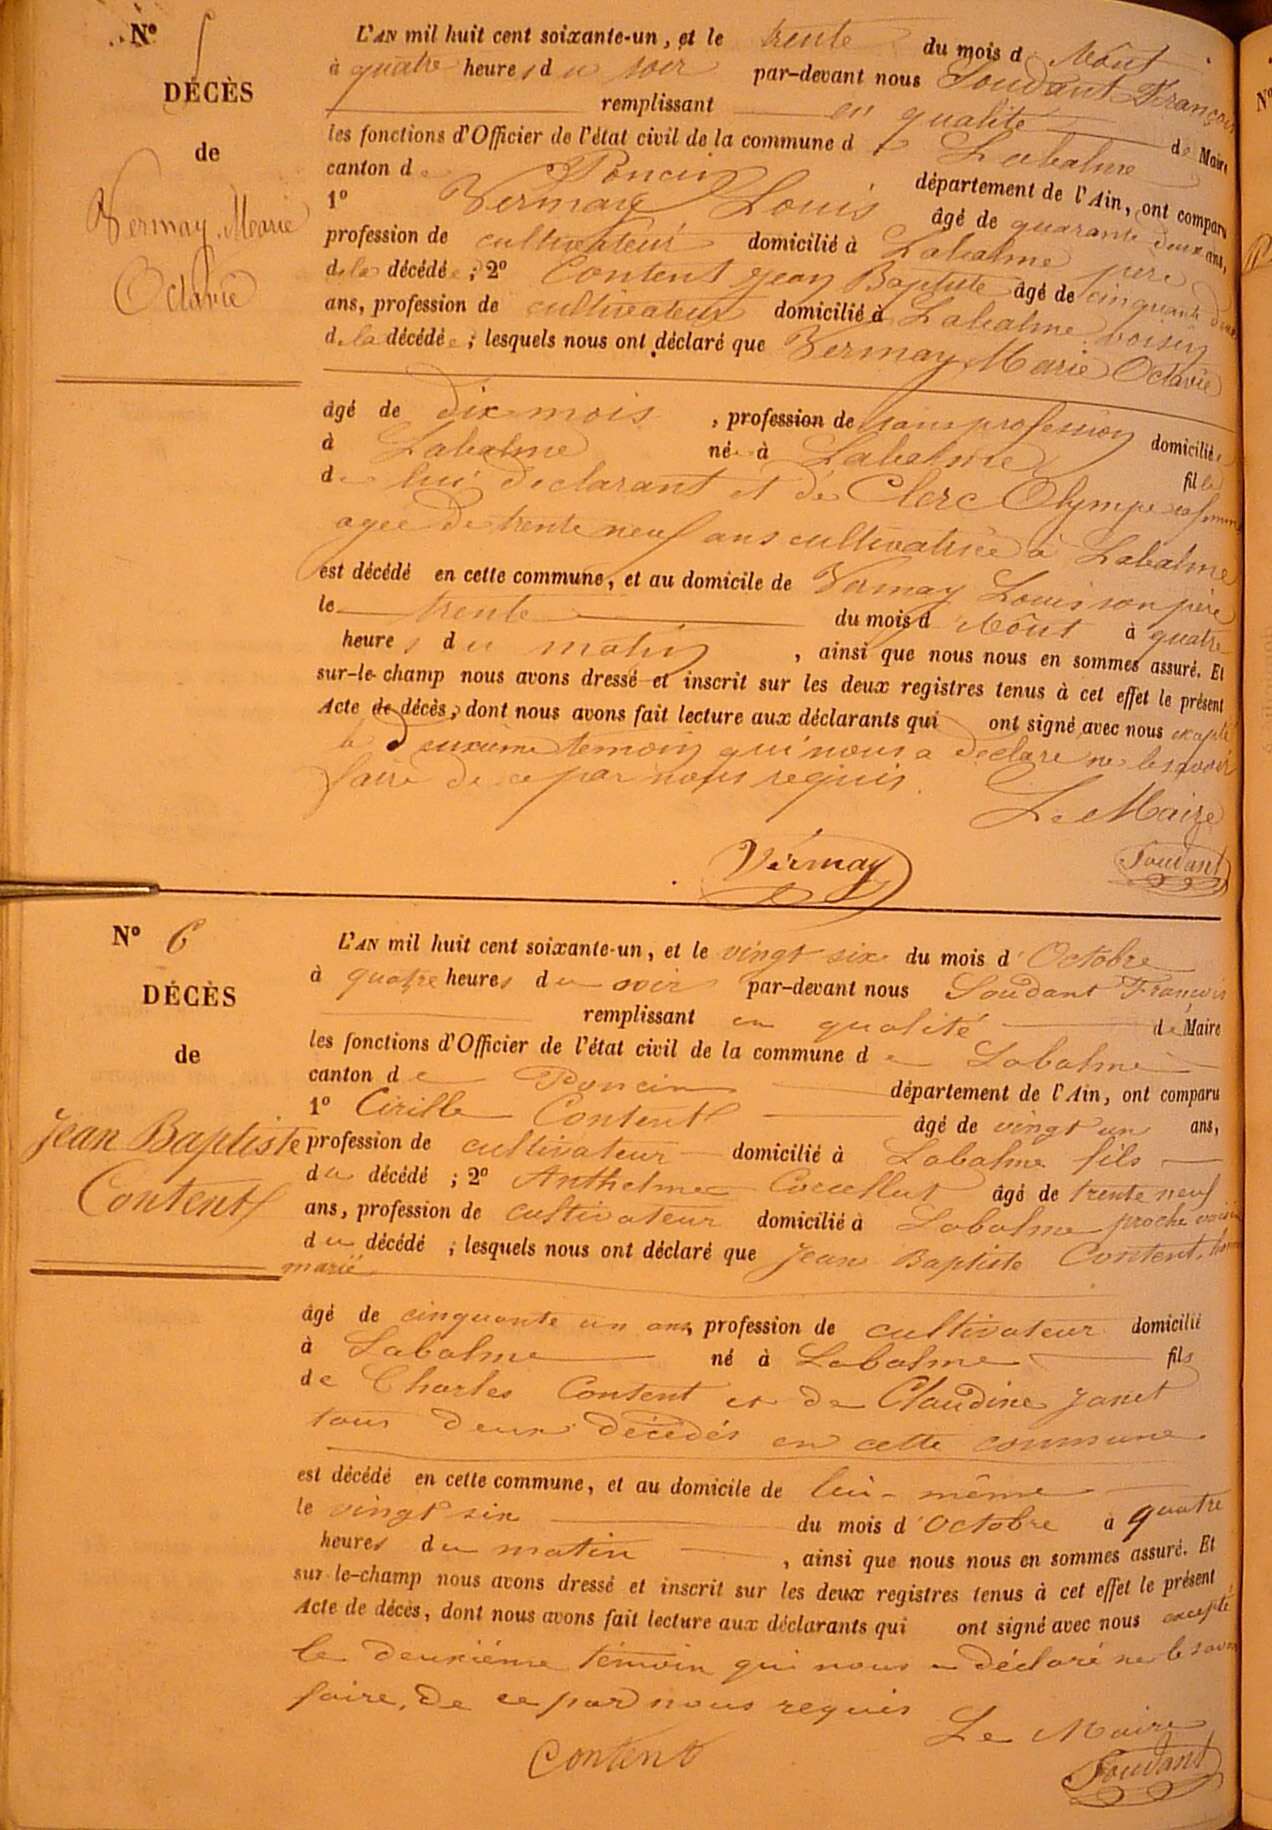 Nº 5
DÉCÈS
de
Vermay Marie
Octavie
L'AN mil huit cent soixante-un, et le trente du mois d'Aôut
à quatre heures du soir par-devant nous Soudant François
remplissant en qualité de Maire
les fonctions d'Officier de l'état civil de la commune de Labalme
canton de Poncin département de l'Ain, ont comparu
1º Vermay Louis âgé de quarante deux ans,
profession de cultivateur domicilié à Labalme père
de la décédée ; 2º Content Jean Baptiste âgé de cinquante deux
ans, profession de cultivateur domicilié à Labalme voisin
de la décédée ; lesquels nous ont déclaré que Vermay Marie Octavie
âgé de dix mois , profession de sans profession domiciliée
à Labalme née à Labalme fille
de lui déclarant et de Clerc Olympe sa femme
agée de trente neuf ans cultivatrice à Labalme
est décédé en cette commune, et au domicile de Vermay Louis son père
le trente du mois d'Aôut à quatre
heures du matin , ainsi que nous nous en sommes assuré. Et
sur-le-champ nous avons dressé et inscrit sur les deux registres tenus à cet effet le présent
Acte de décès, dont nous avons fait lecture aux déclarants qui ont signé avec nous excepté
le deuxième témoin qui nous a déclaré ne le savoir
faire de ce par nous requis.
Le Maire
Vermay Soudant
Nº 6
DÉCÈS
de
Jean Baptiste
Content
L'AN mil huit cent soixante-un, et le vingt six du mois d'Octobre
à quatre heures du soir par-devant nous Soudant François
remplissant en qualité de Maire
les fonctions d'Officier de l'état civil de la commune de Labalme
canton de Poncin département de l'Ain, ont comparu
1º Cirille Content âgé de vingt un ans,
profession de cultivateur domicilié à Labalme fils
du décédé ; 2º Anthelme âgé de trente neuf
ans, profession de cultivateur domicilié à Labalme proche voisin
du décédé ; lesquels nous ont déclaré que Jean Baptiste Content, homme
marié
âgé de cinquante un ans, profession de cultivateur domicilié
à Labalme né à Labalme fils
de Charles Content et de Claudine Janet
tous deux décédés en cette commune
est décédé en cette commune, et au domicile de lui-même
le vingt six du mois d'Octobre à quatre
heures du matin , ainsi que nous nous en sommes assuré. Et
sur-le-champ nous avons dressé et inscrit sur les deux registres tenus à cet effet le présent
Acte de décès, dont nous avons fait lecture aux déclarants qui ont signé avec nous excepté
le deuxiéme témoin qui nous a déclaré ne le savoir
faire, de ce par nous requis
Le Maire
Content Soudant